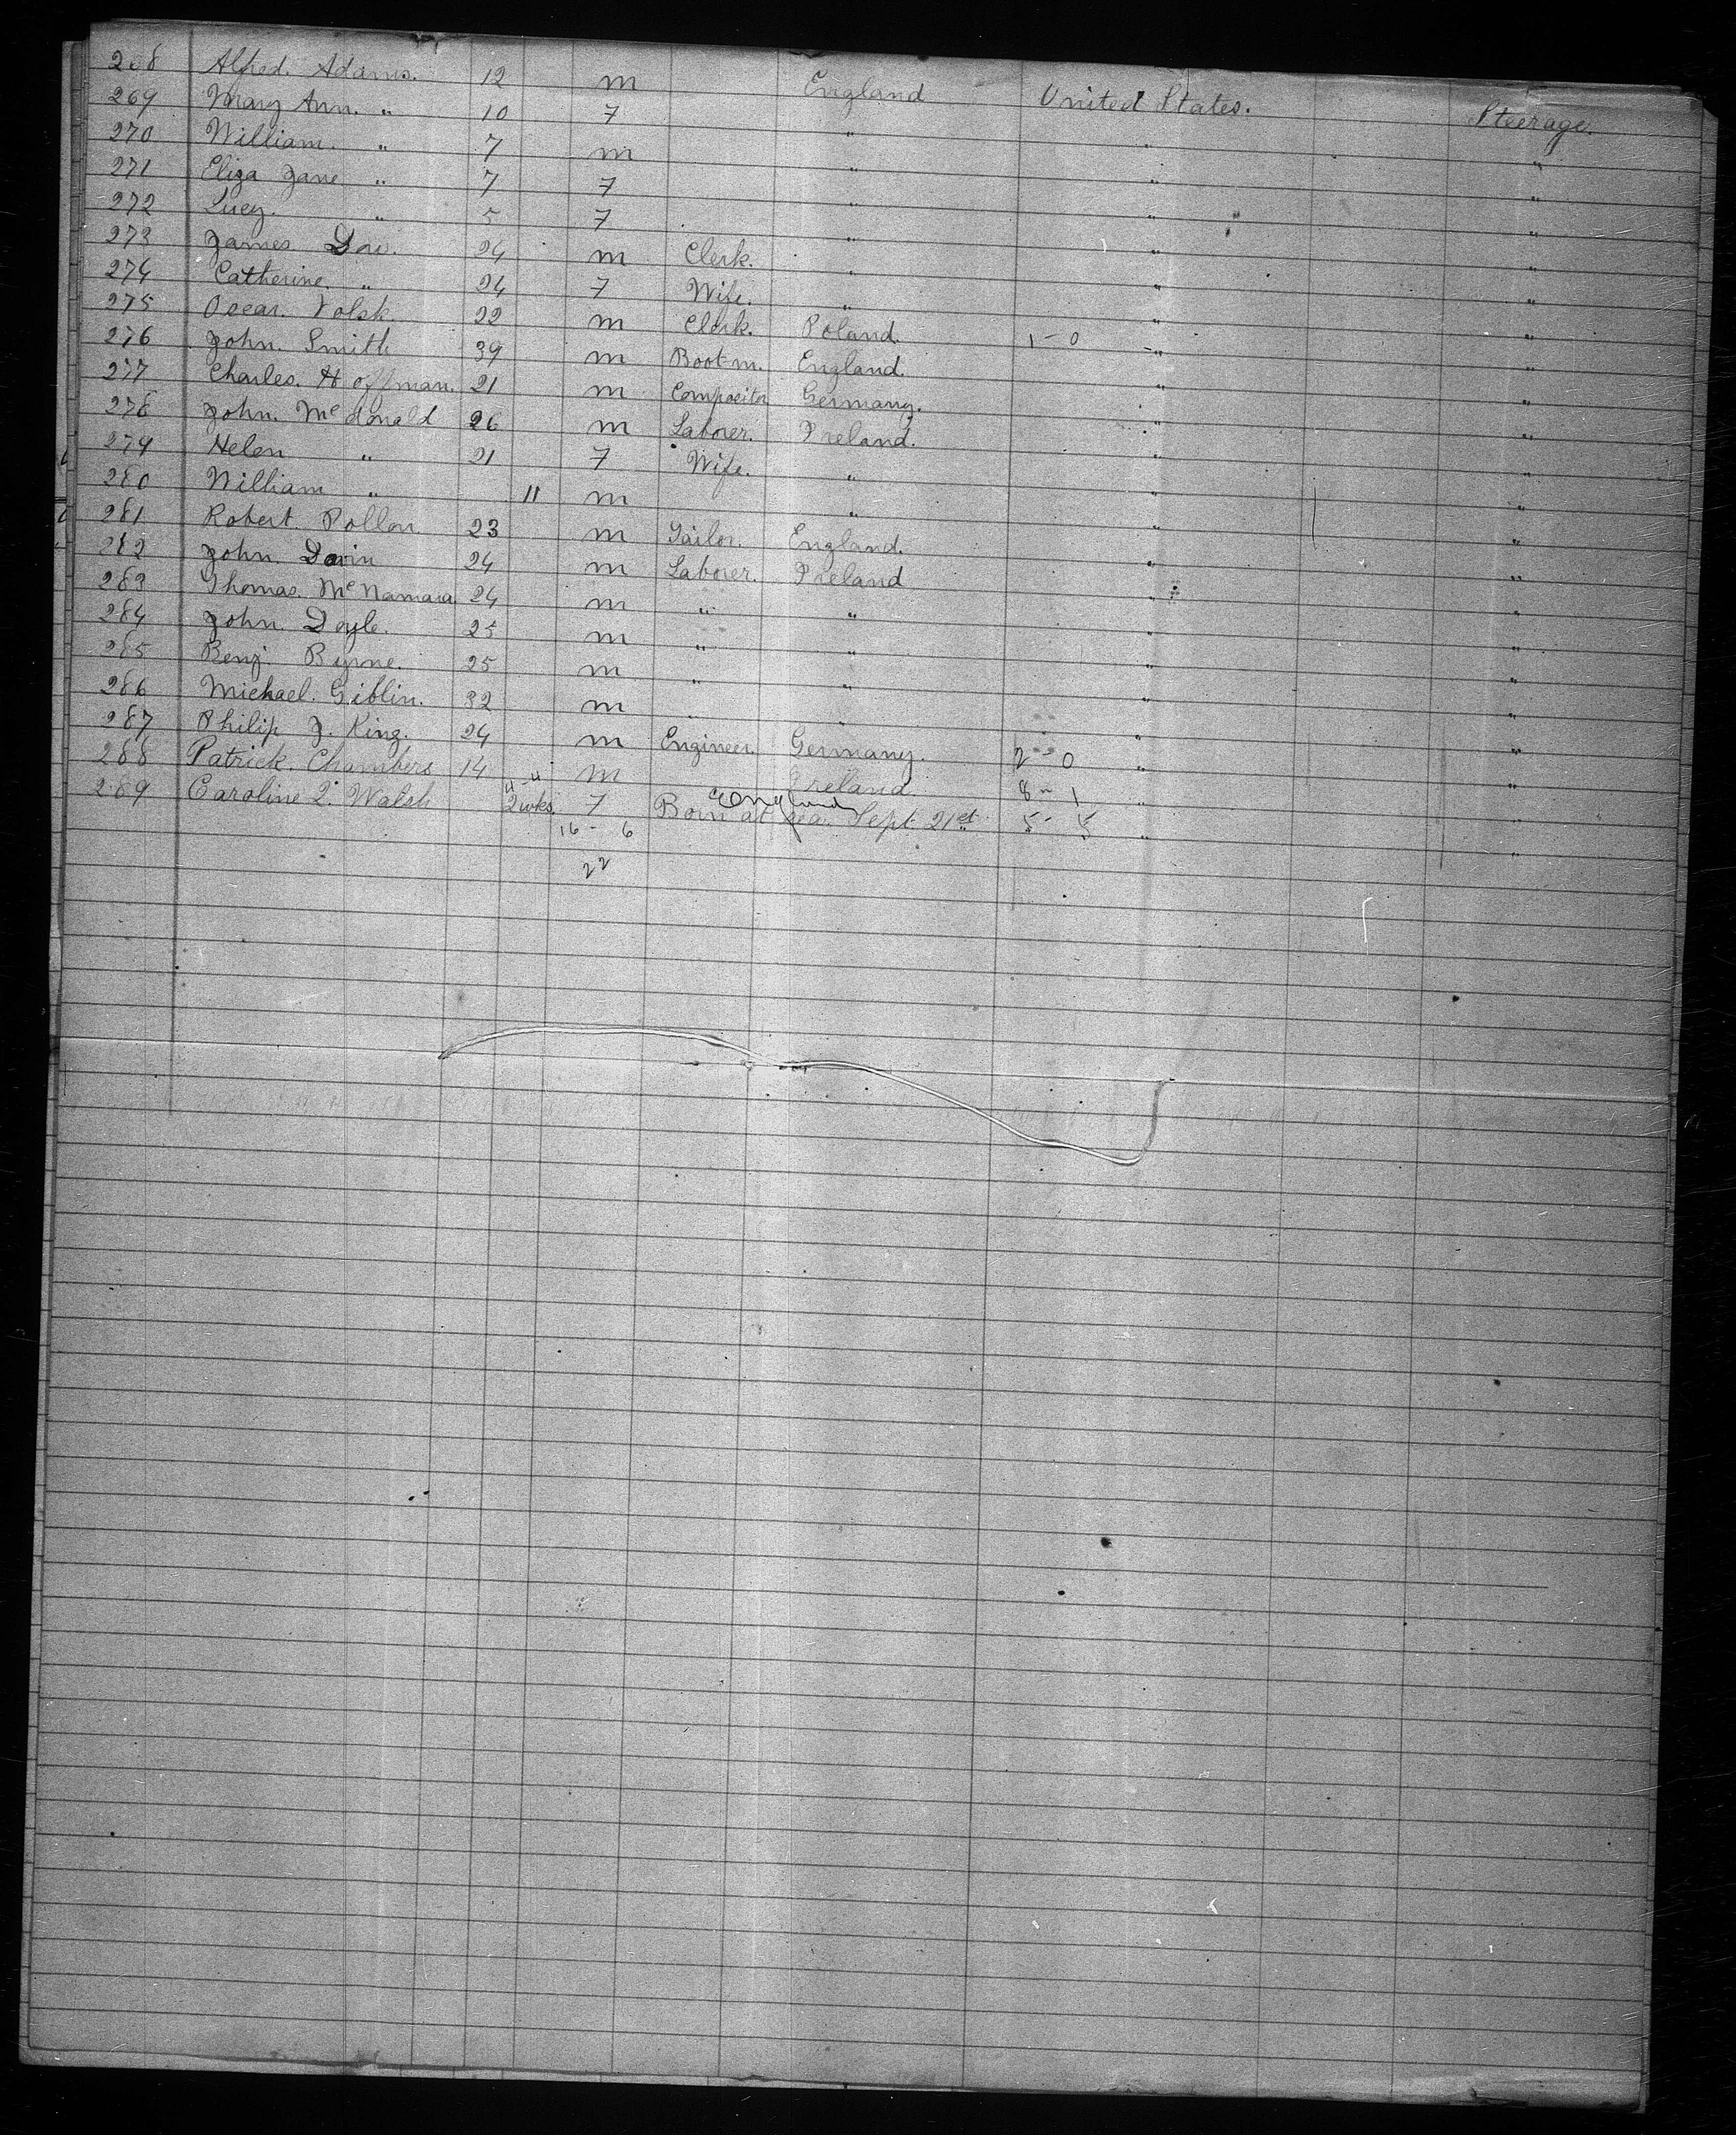 268 Alfred. Adams. 12 m England United States. Steerage.
269 Mary Ann. " 10 F " " "
270 William. " 7 m " " "
271 Eliza Jane " 7 F " " "
272 Lucy. " 5 F " " "
273 James 24 m Clerk. " " "
274 Catherine. " 24 F Wife. " " "
275 Oscar. 22 m Clerk. Poland. 1-0 " "
276 John. Smith 39 m Boot m. England. " "
277 Charles. Hoffman. 21 m Compositor Germany. " "
278 John. McDonald 26 m Laborer. Ireland. " "
279 Helen " 21 F Wife. " " "
280 William " 11 m " " "
281 Robert. Pollon 23 m Tailor. England. " "
282 John. 24 m Laborer. Ireland " "
283 Thomas. McNamara 24 m " " " "
284 John. Doyle. 25 m " " " "
285 Benj. Byrne. 25 m " " " "
286 Michael. Giblin. 32 m " " " "
287 Philip J. King. 24 m Engineer. Germany. 2-0 " "
288 Patrick. Chambers 14 m Ireland. 8-1 " "
England
289 Caroline Walsh 2 wks. F Born at sea. Sept. 21st 5-5 " "
16-6
22